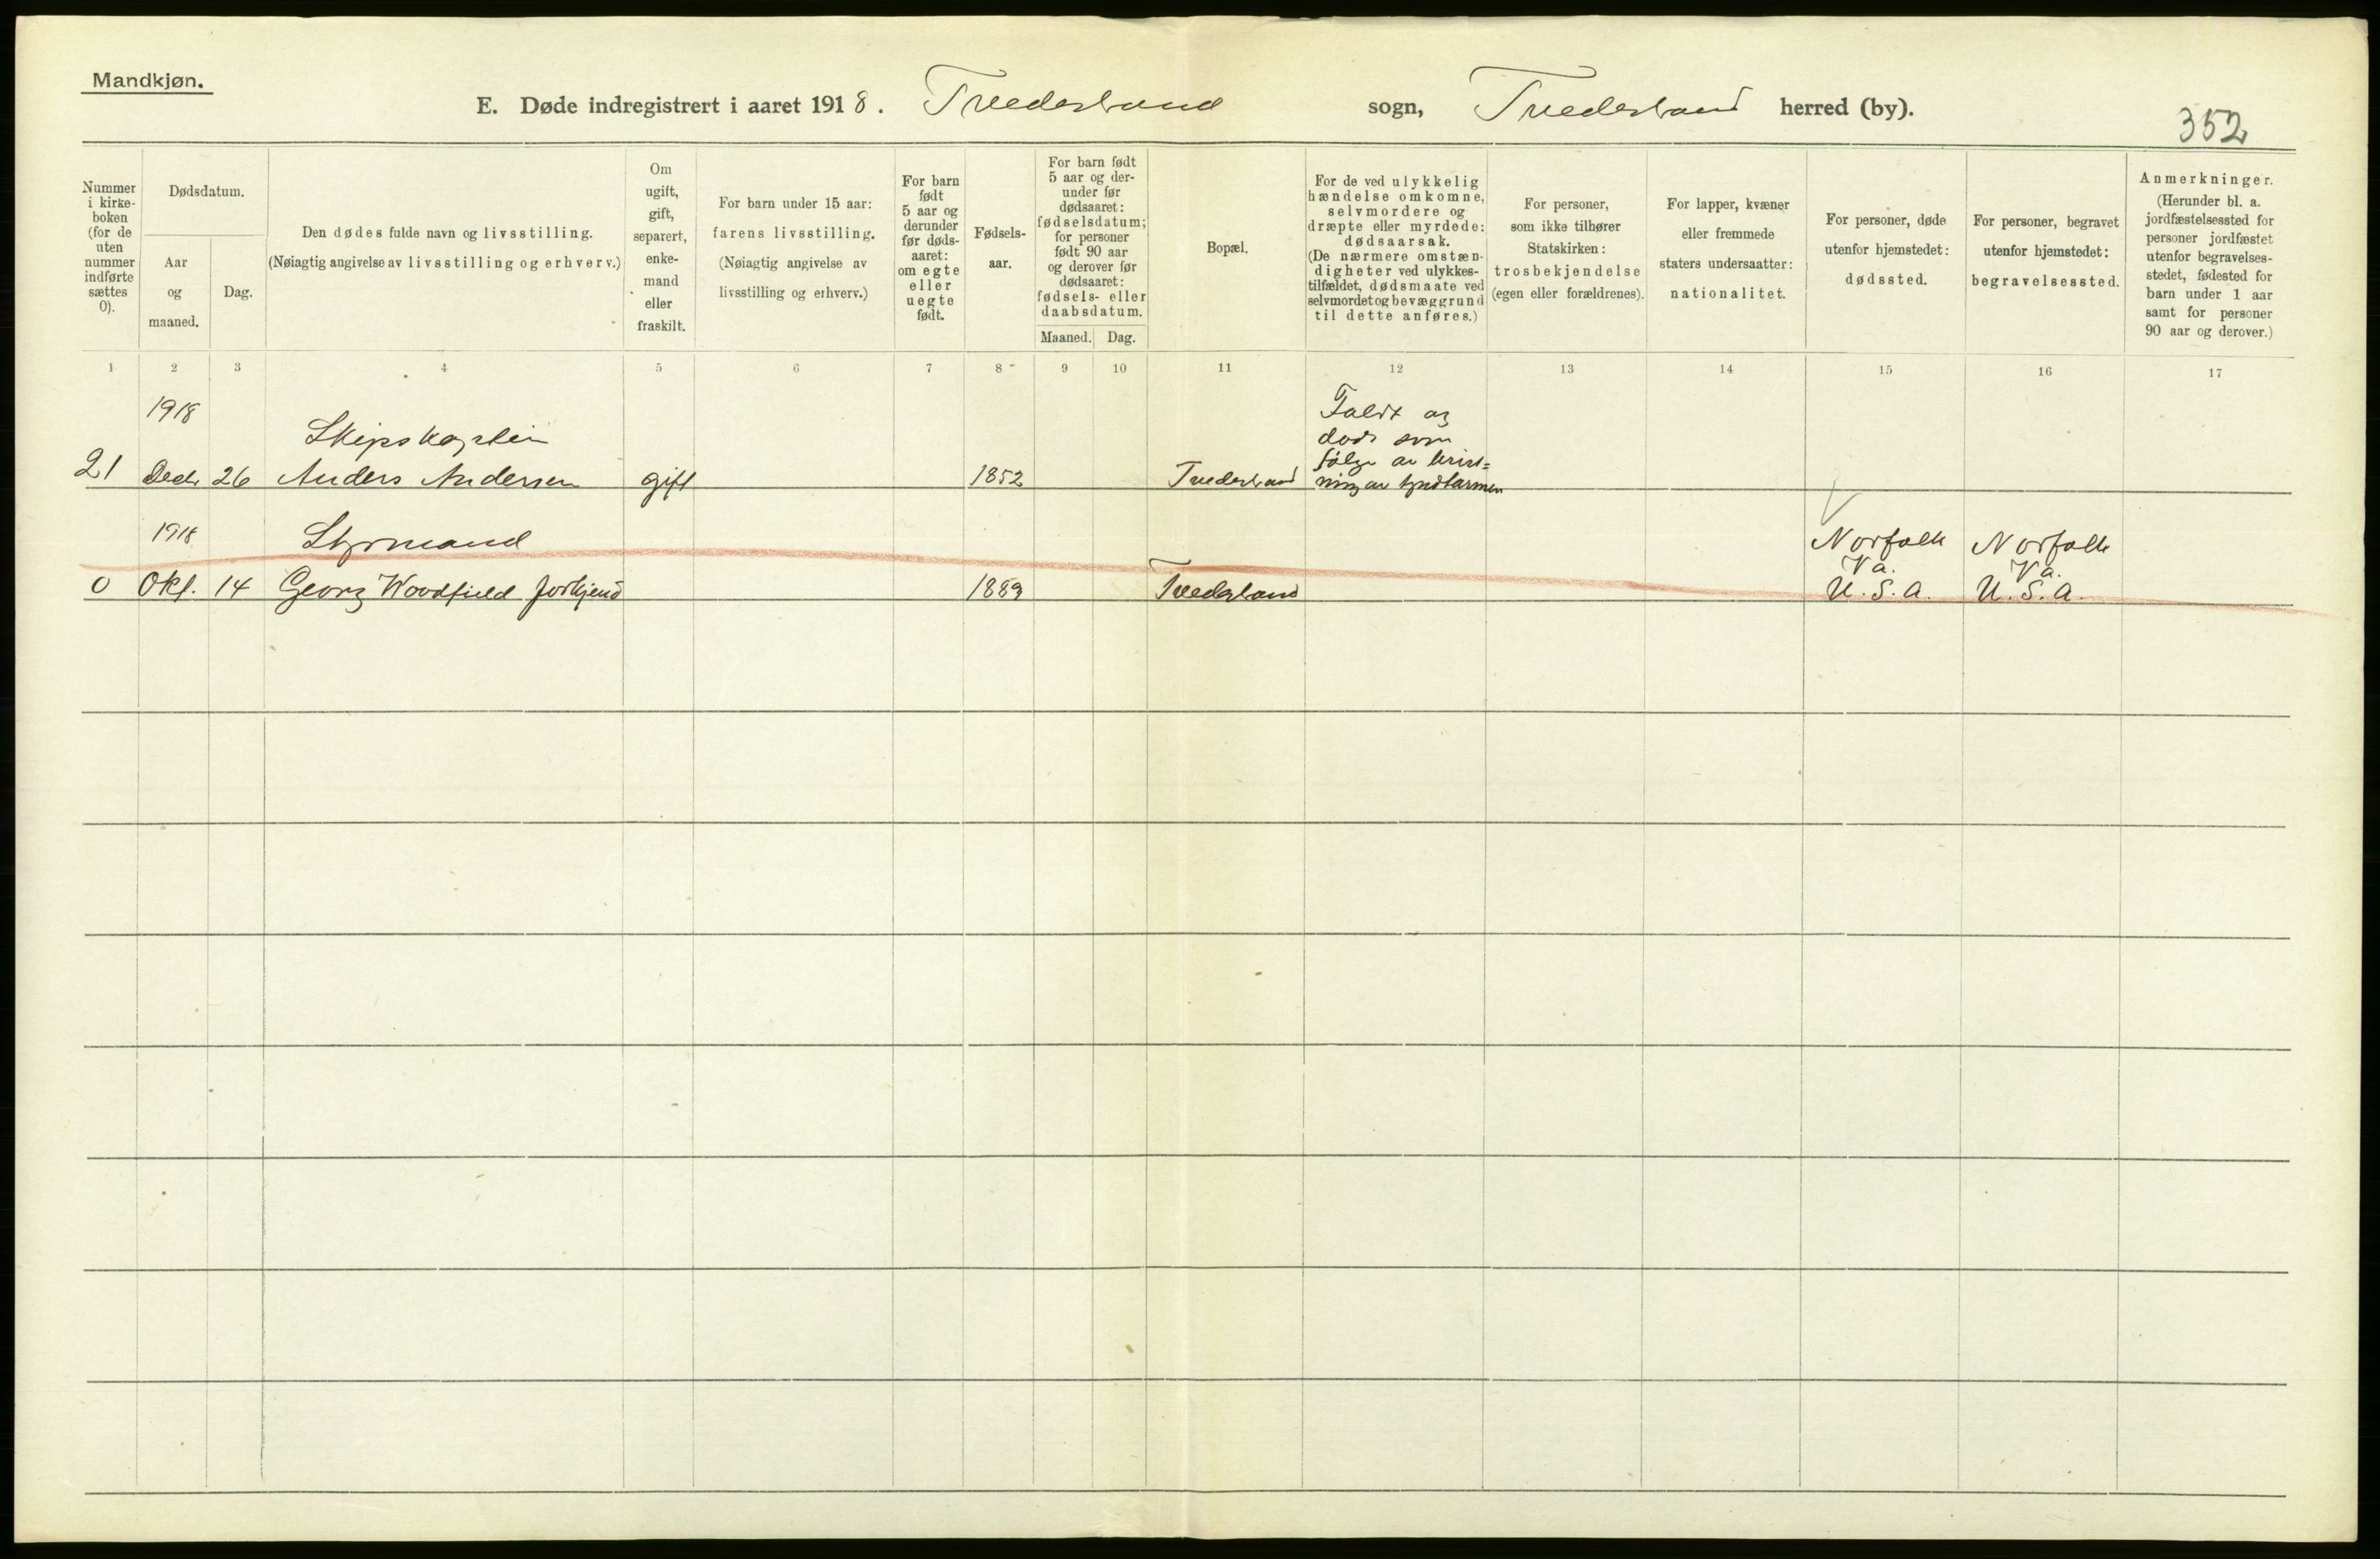 Mandkjøn.
E. Døde indregistrert i aaret 1918. Tvedestrand sogn, Tvedestrand herred (by).
352
Nummer i kirke- boken (for de uten nummer indførte sættes 0).
Dødsdatum.
Aar og maaned.
Dag.
Den dødes fulde navn og livsstilling.
(Nøiagtig angivelse av livsstilling og erhverv.)
Om ugift, gift, separert, enke- mand eller fraskilt.
For barn under 15 aar:
farens livsstilling.
(Nøiagtig angivelse av livsstilling og erhverv.)
For barn født 5 aar og derunder før døds- aaret: om egte eller uegte født.
Fødsels- aar.
For barn født 5 aar og der- under før dødsaaret: fødselsdatum; for personer født 90 aar og derover før dødsaaret: fødsels- eller daabsdatum.
Maaned. Dag.
Bopæl.
For de ved ulykkelig hændelse omkomne, selvmordere og dræpte eller myrdede: dødsaarsak. (De nærmere omstæn- digheter ved ulykkes- tilfældet, dødsmaate ved selvmordet og bevæggrund til dette anføres.)
For personer, som ikke tilhører Statskirken: trosbekjendelse (egen eller forældrenes).
For lapper, kvæner eller fremmede staters undersaatter: nationalitet.
For personer, døde utenfor hjemstedet: dødssted.
For personer, begravet utenfor hjemstedet: begravelsessted.
Anmerkninger. (Herunder bl. a. jordfæstelsessted for personer jordfæstet utenfor begravelses- stedet, fødested for barn under 1 aar samt for personer 90 aar og derover.)
1 2 3 4 5 6 7 8 9 10 11 12 13 14 15 16 17
1918
Skipskaptein
Faldt og
døde som
følge av brist=
21 Decb. 26 Anders Andersen gift 1852 Tvedestrand ning av tyndtarmen
1918
Styrmand
Norfolk Norfolk
Va. Va.
0 Okt. 14 Georg Woodfield 1889 Tvedestrand U.S.A. U.S.A.